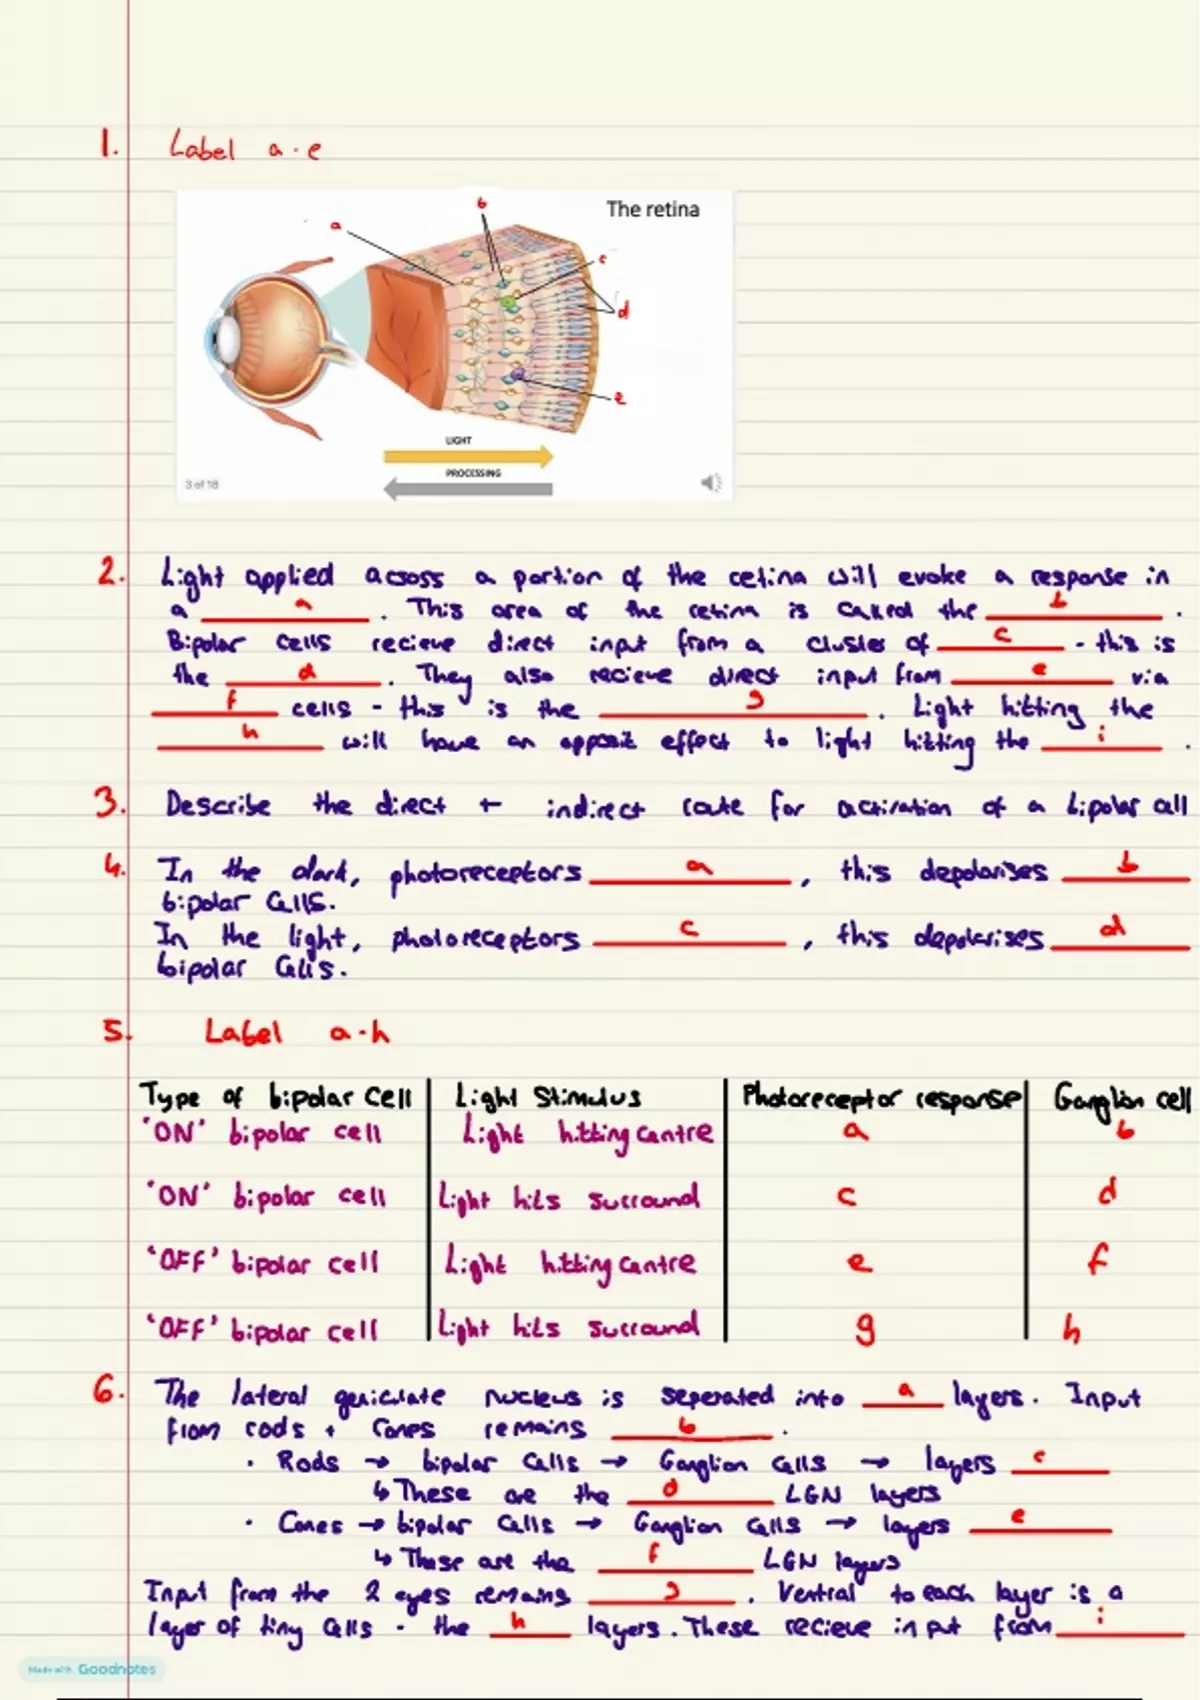 1. Label a-e
The retina
a
b
c
d
e
LIGHT
PROCESSING
3 of 18
2. Light applied across a portion of the retina will evoke a response in
a ___a___. This area of the retina is called the ___b___.
Bipolar cells recieve direct input from a cluster of ___c___ - this is
the ___d___. They also recieve direct input from ___e___ via
___f___ cells - this is the ___g___. Light hitting the
___h___ will have an opposit effect to light hitting the ___i___.
3. Describe the direct + indirect route for activation of a bipolar cell
4. In the dark, photoreceptors ___a___, this depolarises ___b___
bipolar cells.
In the light, photoreceptors ___c___, this depolarises ___d___
bipolar cells.
5. Label a-h
Type of bipolar cell Light Stimulus Photoreceptor response Ganglion cell
'ON' bipolar cell Light hitting centre a b
'ON' bipolar cell Light hits surround c d
'OFF' bipolar cell Light hitting centre e f
'OFF' bipolar cell Light hits surround g h
6. The lateral geniculate nucleus is seperated into ___a___ layers. Input
from rods + cones remains ___b___.
· Rods → bipolar cells → Ganglion cells → layers ___c___
↳ These are the ___d___ LGN layers
· Cones → bipolar cells → Ganglion cells → layers ___e___
↳ These are the ___f___ LGN layers
Input from the 2 eyes remains ___g___. Ventral to each layer is a
layer of tiny cells - the ___h___ layers. These recieve input from ___i___
Made with Goodnotes